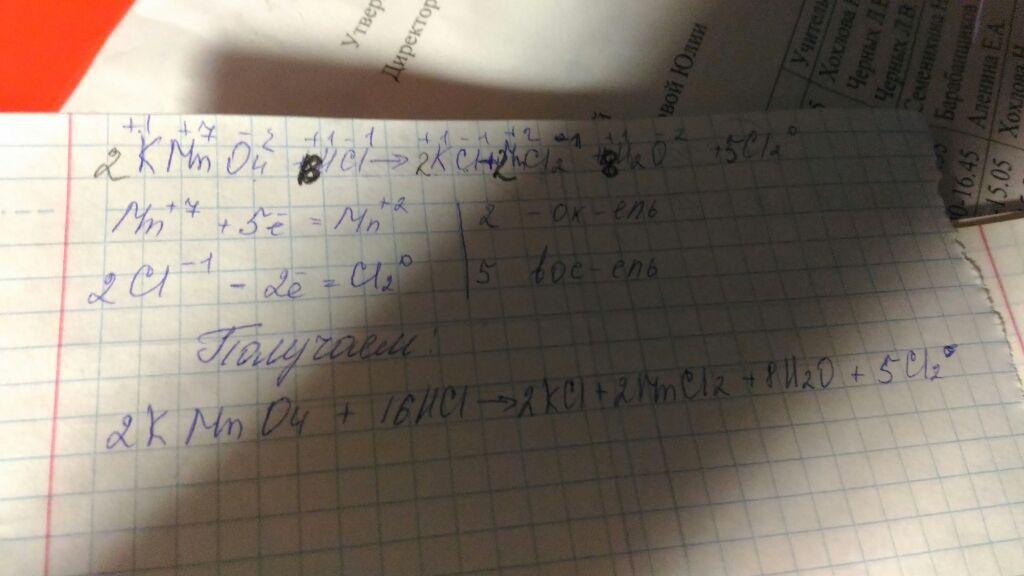 Утвер
Директор
вой Юлии
Учитель
Хохлова Н
Черных Л.В
Черных Л.В.
Семенникова Н
Барабашина
Аленина Е.А
Хохлова Н
16.45
15.05
+1 +7 -2 +1 -1 +1 -1 +2 -1 +1 -2 0
2KMnO4 + 8HCl → 2KCl + 2MnCl2 + 8H2O + 5Cl2
Mn+7 + 5ē = Mn+2 | 2 - ок-ель
2Cl-1 - 2ē = Cl2 0 | 5 вос-ель
Получаем:
2KMnO4 + 16HCl → 2KCl + 2MnCl2 + 8H2O + 5Cl2